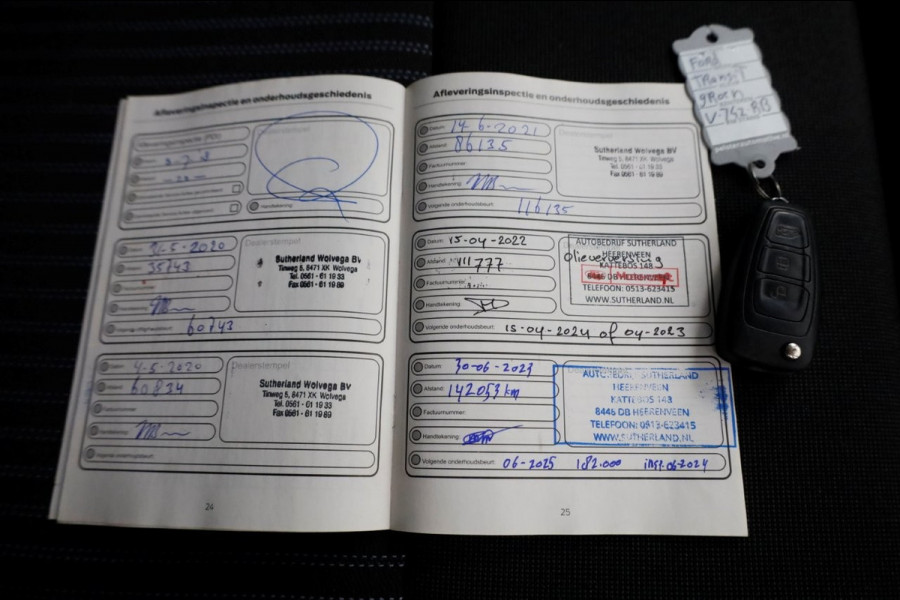 Afleveringsinspectie en onderhoudsgeschiedenis
Afleveringsinspectie (PDI)
Dealerstempel
Handtekening:
Datum: 31-5-2020
Afstand: 35743
Dealerstempel
Sutherland Wolvega BV
Tinweg 5, 8471 XK Wolvega
Tel. 0561 - 61 19 33
Fax 0561 - 61 19 89
60743
Datum: 4-5-2020
60834
Dealerstempel
Sutherland Wolvega BV
Tinweg 5, 8471 XK Wolvega
Tel. 0561 - 61 19 33
Fax 0561 - 61 19 89
Handtekening:
Volgende onderhoudsbeurt:
24
Afleveringsinspectie en onderhoudsgeschiedenis
Datum: 14-6-2021
Afstand: 86135
Factuurnummer:
Handtekening:
Sutherland Wolvega BV
Tinweg 5, 8471 XK Wolvega
Tel. 0561 - 61 19 33
Fax 0561 - 61 19 89
Volgende onderhoudsbeurt: 116135
Datum: 15-04-2022
Afstand: 111777
Factuurnummer:
Handtekening:
AUTOBEDRIJF SUTHERLAND
HEERENVEEN
Olieverversing
KATTEBOS 148
8446 DB HEERENVEEN
TELEFOON: 0513-623415
WWW.SUTHERLAND.NL
Volgende onderhoudsbeurt: 15-04-2024 of 04-2023
Datum: 30-06-2023
Afstand: 142053 km
Factuurnummer:
Handtekening:
AUTOBEDRIJF SUTHERLAND
HEERENVEEN
KATTEBOS 148
8446 DB HEERENVEEN
TELEFOON: 0513-623415
WWW.SUTHERLAND.NL
Volgende onderhoudsbeurt: 06-2025 182.000 insp. 06-2024
25
Ford
Transit
gRoen
V-752-BB